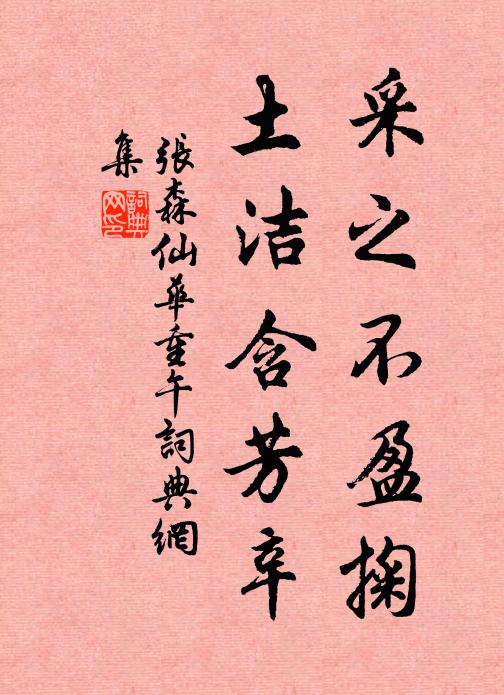 采之不盈掬
土洁含芳辛
張森仙華重午詞典網
集
詞典網印